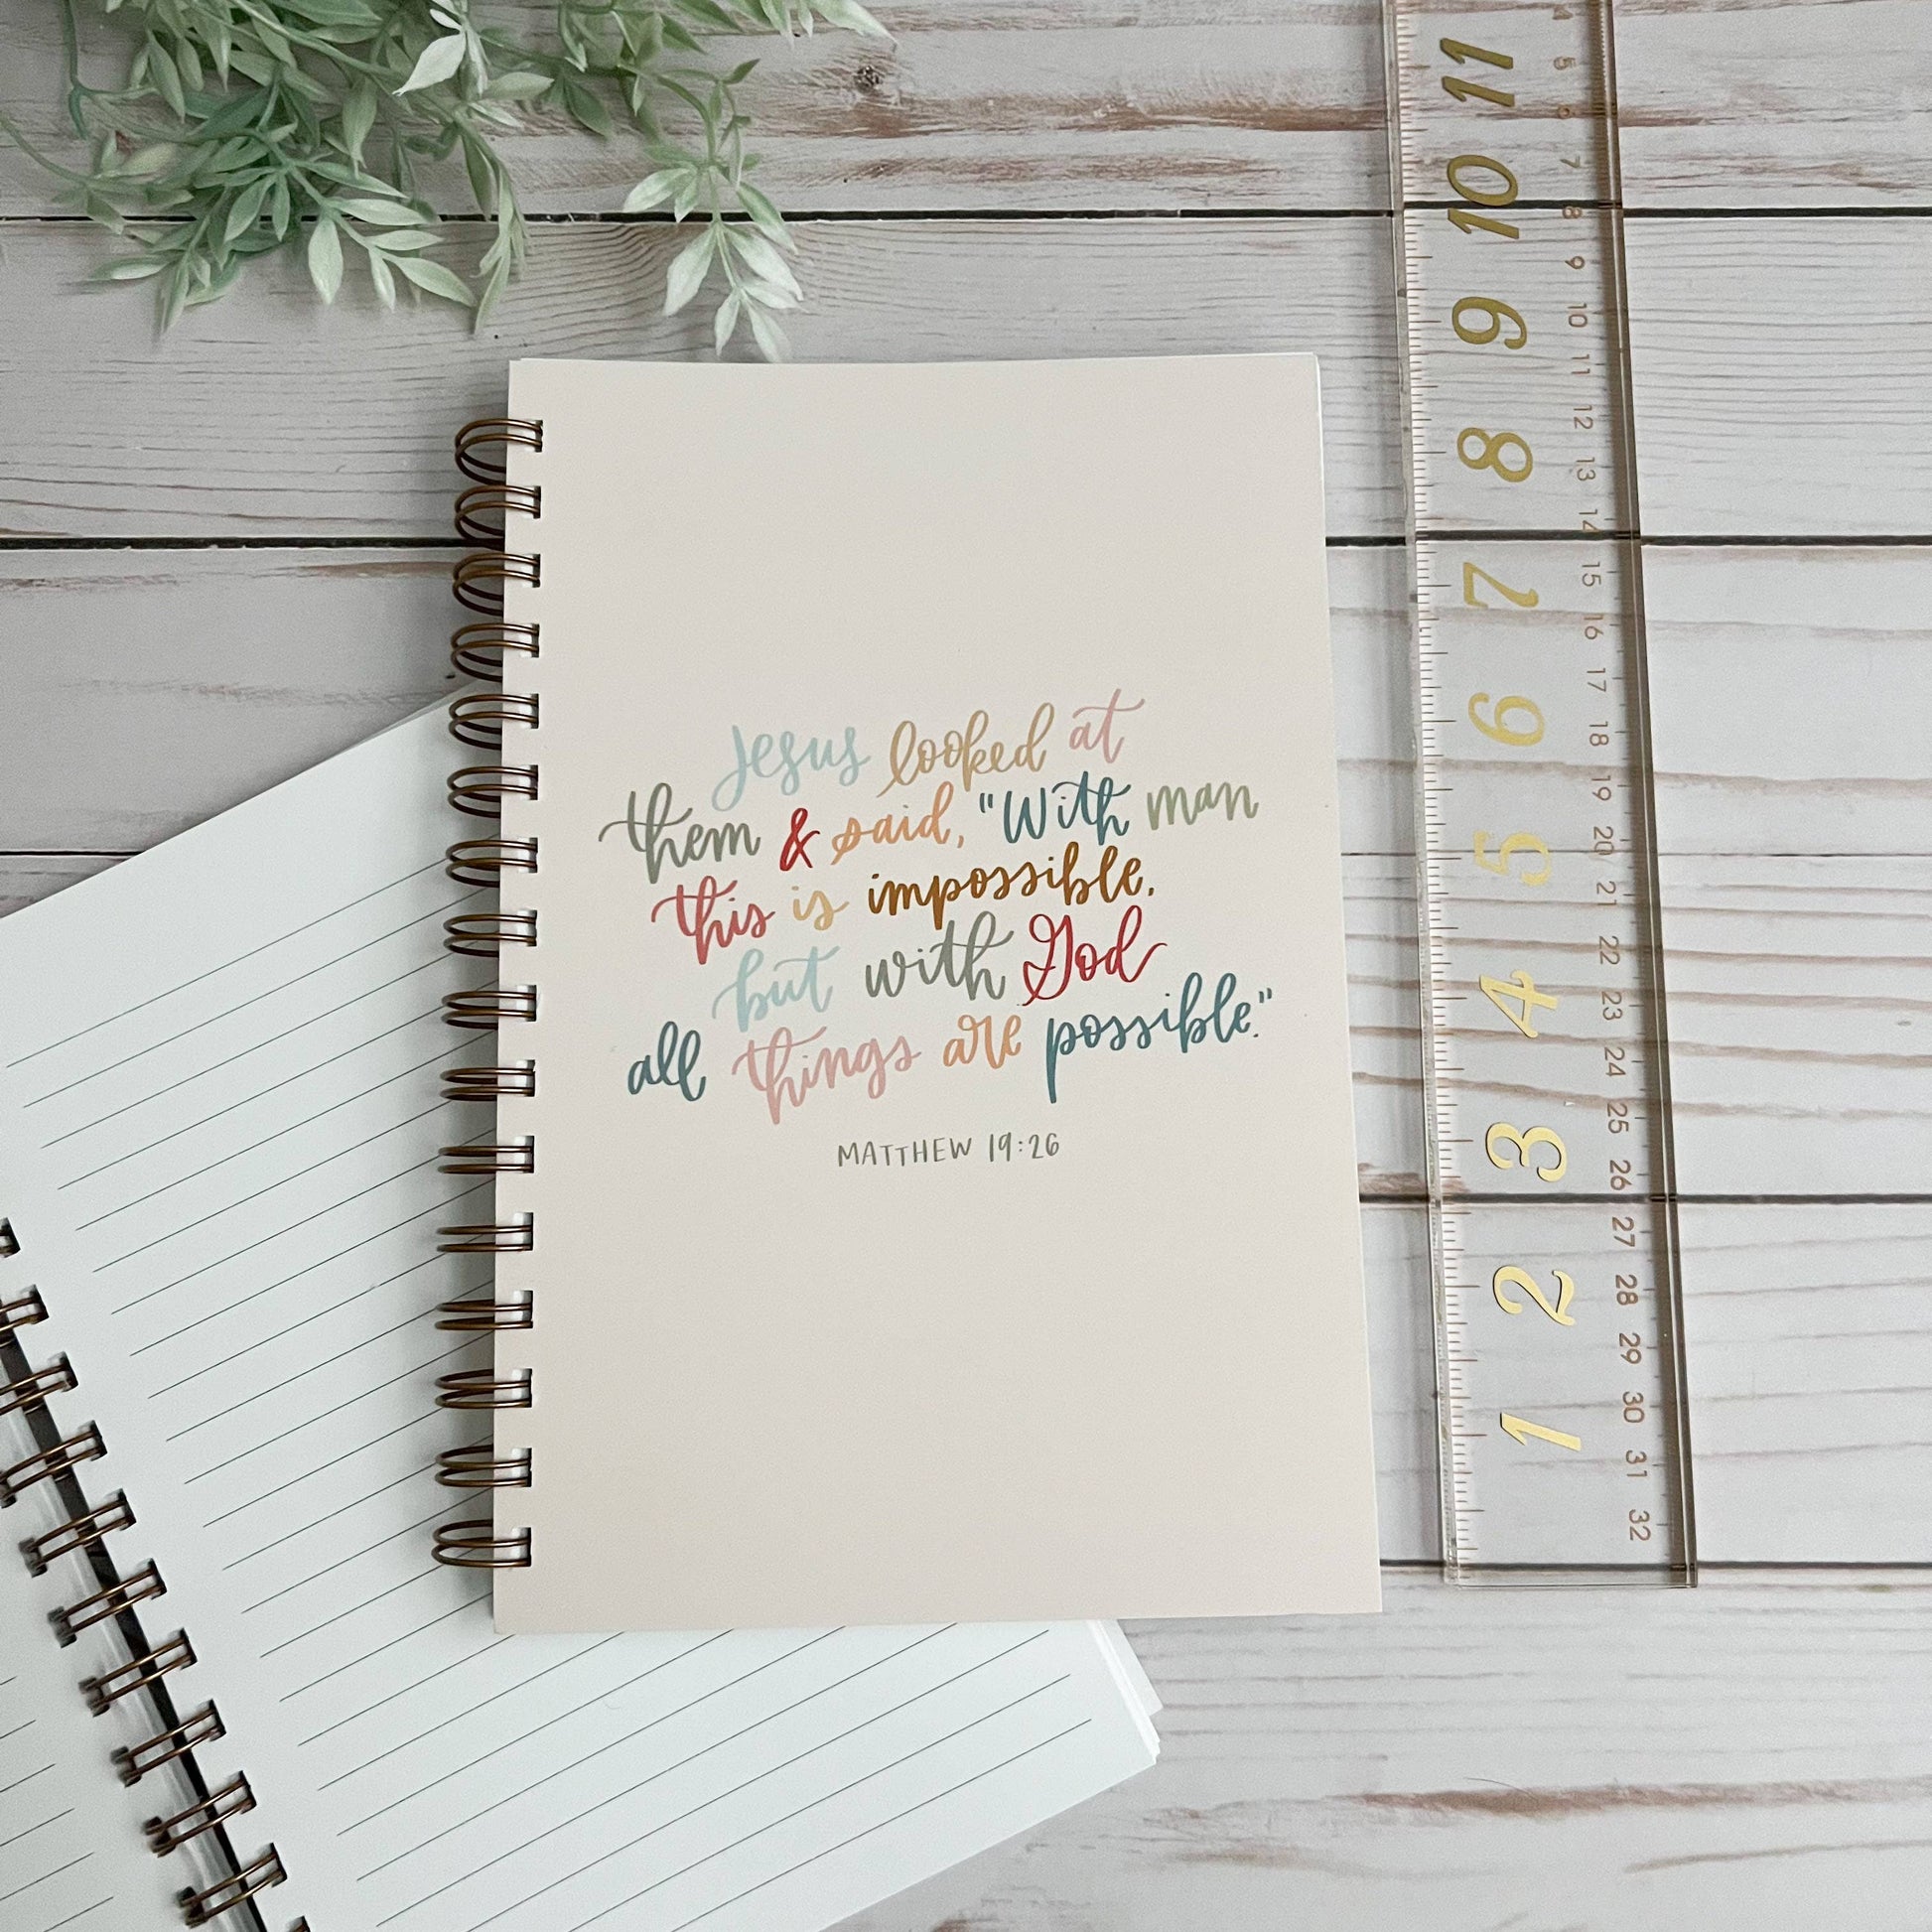 Jesus looked at
them & said, "With man
this is impossible,
but with God
all things are possible."
MATTHEW 19:26
11
10
9
8
7
6
5
4
3
2
1
5
6
7
8
9
10
11
12
13
14
15
16
17
18
19
20
21
22
23
24
25
26
27
28
29
30
31
32